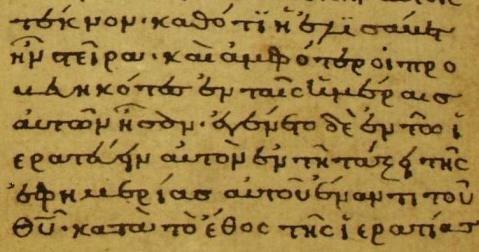 τέκνον· καθότι ἡ ἐλισάβετ
ἦν στεῖρα· καὶ ἀμφότεροι προ
βεβηκότες ἐν ταῖς ἡμέραις
αὐτῶν ἦσαν· ἐγένετο δὲ ἐν τῶ ἱ
ερατεύειν αὐτὸν ἐν τῆ τάξει τῆς
ἐφημερίας αὐτοῦ ἔναντι τοῦ
θυ̅· κατὰ τὸ ἔθος τῆς ἱερατίας